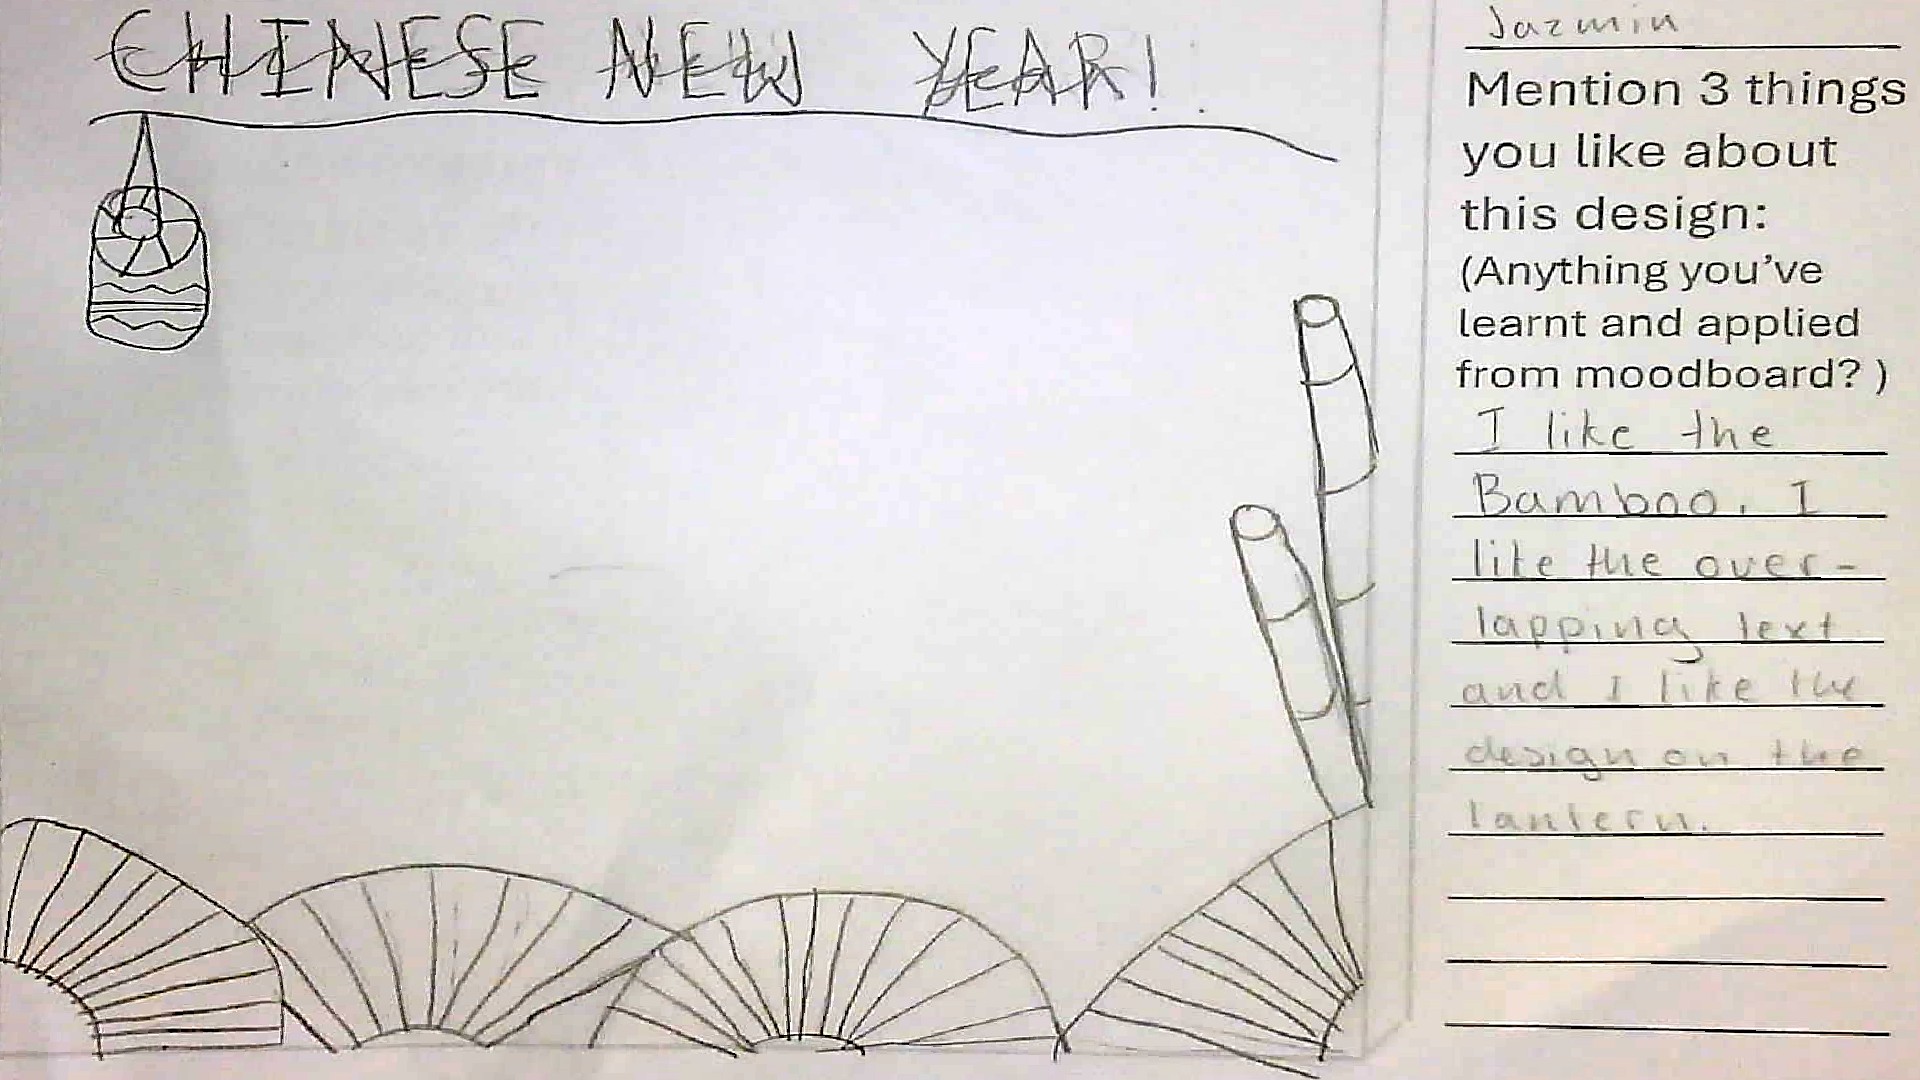 CHINESE NEW YEAR!
Jazmin
Mention 3 things
you like about
this design:
(Anything you've
learnt and applied
from moodboard? )
I like the
Bamboo. I
like the over-
lapping text
and I like the
design on the
lantern.